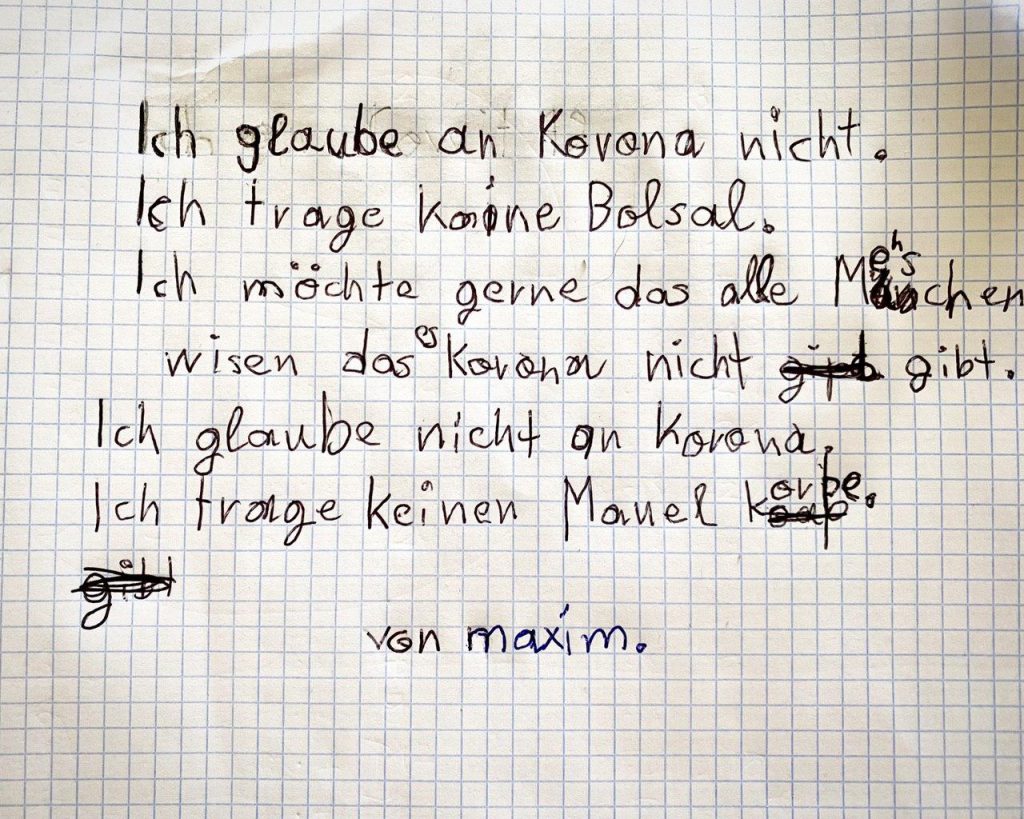 Ich glaube an Korona nicht.
Ich trage kaine Bolsal.
Ich möchte gerne das alle Mehschen
wisen das es Korona nicht gipt gibt.
Ich glaube nicht an Korona.
Ich trage keinen Mauel korbe.
gibt
von maxim.